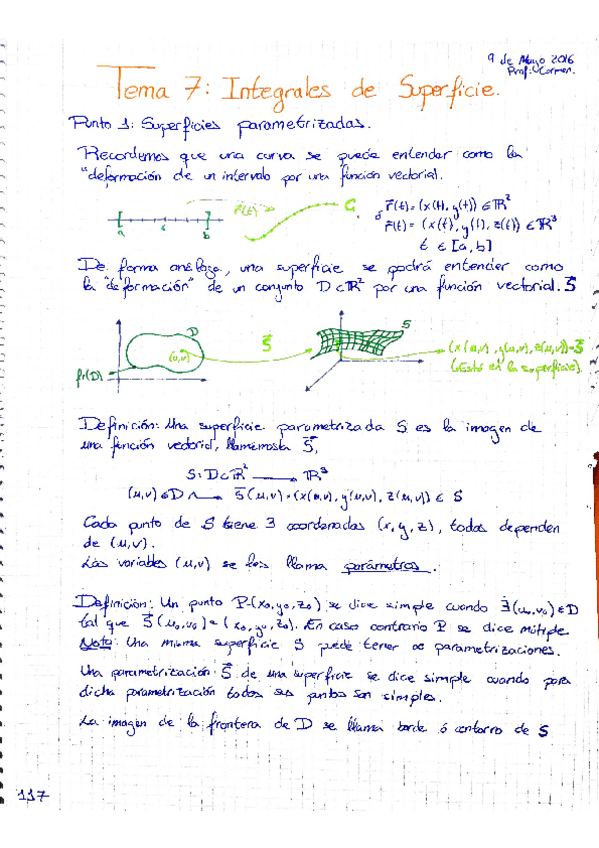 9 de Mayo 2016
Prof: Carmen.
Tema 7: Integrales de Superficie.
Punto 1: Superficies parametrizadas.
Recordemos que una curva se puede entender como la
"deformación de un intervalo por una función vectorial.
[ a t b ] r⃗(t) C ó r⃗(t) = (x(t), y(t)) ∈ ℝ²
r⃗(t) = (x(t), y(t), z(t)) ∈ ℝ³
t ∈ [a, b]
De forma análoga, una superficie se podrá entender como
la "deformación" de un conjunto D ⊂ ℝ² por una función vectorial. S⃗
D (u,v) S⃗ S (x(u,v), y(u,v), z(u,v)) = S⃗
fr(D) (Está en la superficie).
Definición: Una superficie parametrizada S es la imagen de
una función vectorial, llamémosla S⃗,
S: D ⊂ ℝ² → ℝ³
(u,v) ∈ D → S⃗(u,v) = (x(u,v), y(u,v), z(u,v)) ∈ S
Cada punto de S tiene 3 coordenadas (x, y, z), todas dependen
de (u,v).
Las variables (u,v) se les llama parámetros.
Definición: Un punto P=(x₀, y₀, z₀) se dice simple cuando ∃(u₀,v₀) ∈ D
tal que S⃗(u₀,v₀) = (x₀, y₀, z₀). En caso contrario P se dice múltiple
Nota: Una misma superficie S puede tener ∞ parametrizaciones.
Una parametrización S⃗ de una superficie se dice simple cuando para
dicha parametrización todos sus puntos son simples.
La imagen de la frontera de D se llama borde ó contorno de S
117